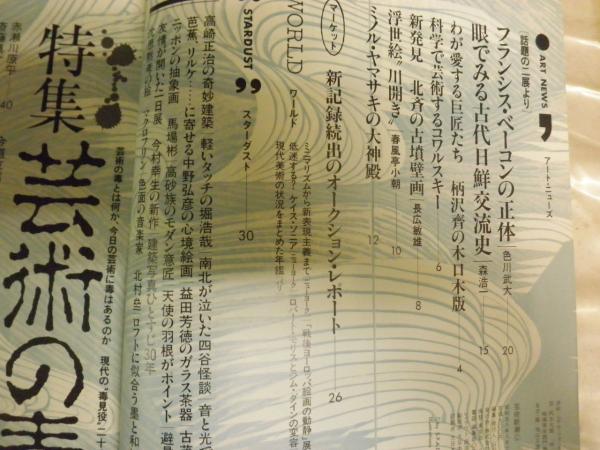 ART NEWS
アート・ニューズ
話題の二展より
フランシス・ベーコンの正体 色川武大 20
眼でみる古代日鮮交流史 森浩一 15
わが愛する巨匠たち 柄沢齊の木口木版 4
科学で芸術するコワルスキー 6
新発見 北斎の古墳壁画 長広敏雄 8
浮世絵"川開き" 春風亭小朝 10
ミノル・ヤマサキの大神殿 12
マーケット
新記録続出のオークション・レポート 26
WORLD
ワールド
ミニマリズムから新表現主義まで ニューヨーク 「戦後ヨーロッパ絵画の動静」展
低迷する?ケイス・ソニア ニューヨーク ロバート・モリスとジム・ダインの変容
現代美術の状況をまとめた年鑑 パリ
STARDUST
スターダスト 30
高崎正治の奇妙建築 軽いタッチの堀浩哉 南北が泣いた四谷怪談 音と光で
芭蕉、リルケ……に寄せる中野弘彦の心境絵画 益田芳徳のガラス茶器 古
ニッポンの抽象画 馬場彬 高砂族のモダン意匠 天使の羽根がポイント 避
友情が開いた二日展 今村幸生の新作 建築写真ひとすじ30年
色面の音楽家 北村 ロフトに似合う墨と和
赤瀬川原平 40
特集
芸術の毒
芸術の毒とは何か、今日の芸術に毒はあるのか 現代の"毒見役"二十